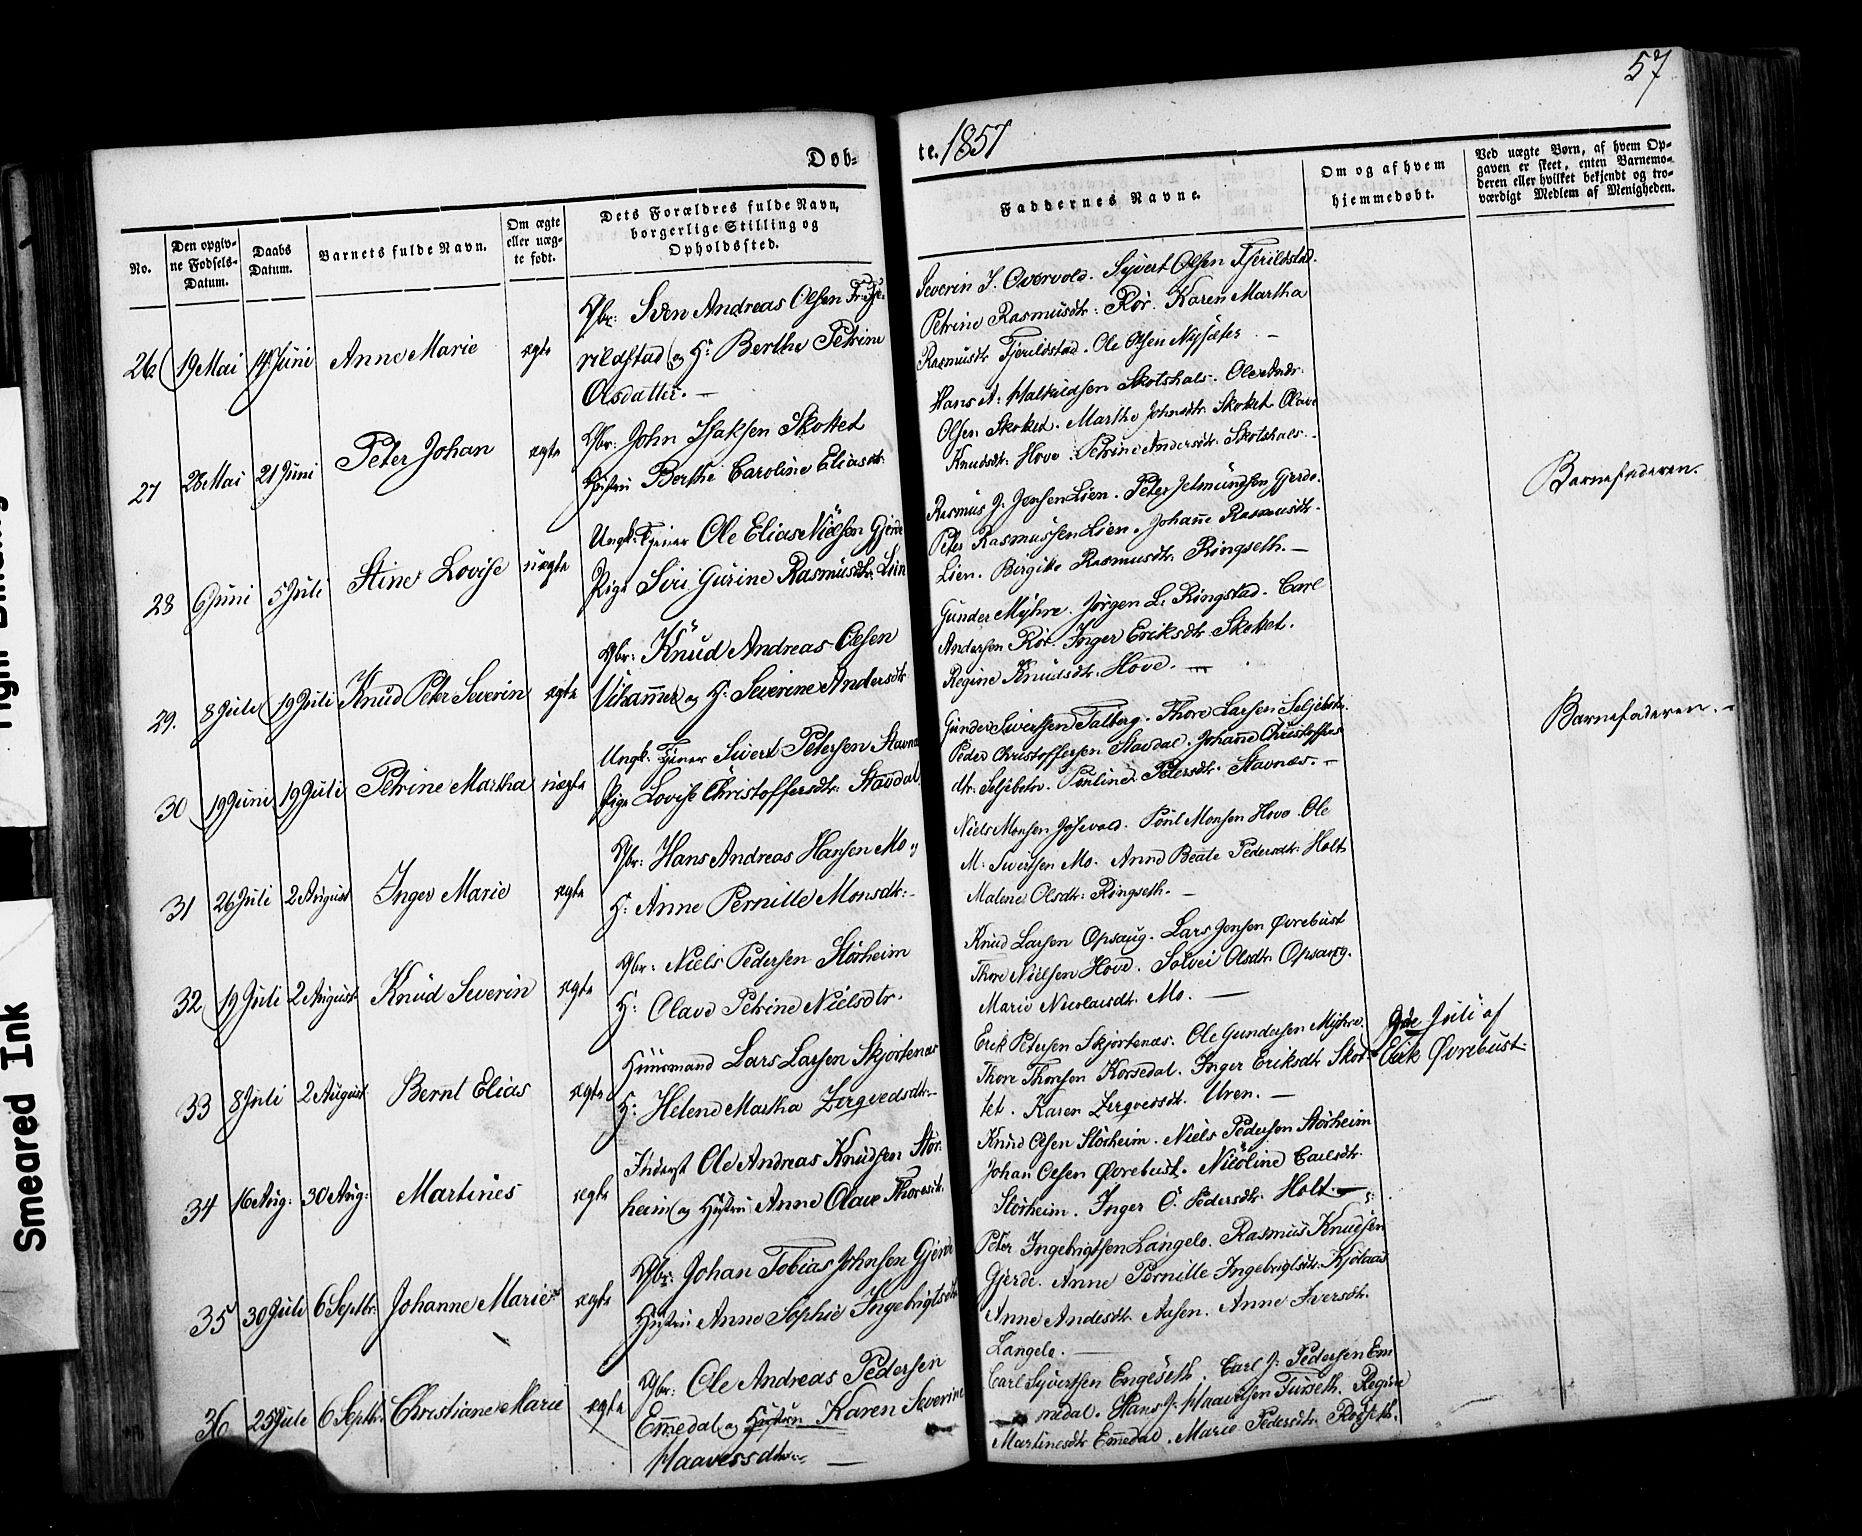 57
Døb-
te. 1857
No.
Den opgiv-
ne Fødsels-
Datum.
Daabs
Datum.
Barnets fulde Navn.
Om ægte
eller uæg-
te født.
Dets Forældres fulde Navn,
borgerlige Stilling og
Opholdssted.
Faddernes Navne.
Om og af hvem
hjemmedøbt.
Ved uægte Børn, af hvem Op-
gaven er skeet, enten Barnemo-
deren eller hvilket bekjendt og tro-
værdigt Medlem af Menigheden.
26 19 Mai 14 Juni Anne Marie ægte
Gbr: Sven Andreas Olsen
rildstad og H: Berthe Petrine
Olsdatter. —
Severin I. Overvold. Syvert Olsen Fjerildstad.
Petrine Rasmusdtr: Rør. Karen Martha
Rasmusdtr Fjerildstad. Ole Olsen Nysæter. —
27 28 Mai 21 Juni Peter Johan ægte
Gbr: John Isaksen Skottet
Hustru Berthe Caroline Eliasdtr:
Hans A: Skotshals. Ole Andr:
Olsen Skottet. Marthe Johnsdtr: Skottet. Olave
Knudsdtr: Hove. Petrine Andersdtr. Skotshals.
28 6 Juni 5 Juli Stine Lovise uægte
Ungk: Tjener Ole Elias Nielsen Gjerde
Pige Siri Gurine Rasmusdtr. Lien
Rasmus J. Jensen Lien. Peter Jetmundsen Gjerde.
Peter Rasmussen Lien. Johanne Rasmusdtr.
Lien. Birgitte Rasmusdtr. Ringseth. —
Barnefaderen.
29. 8 Juli 19 Juli Knud Peter Severin ægte
Gbr: Knud Andreas Olsen
Vihammer og H: Severine Andersdtr
Gunder Myhre. Jørgen L. Ringstad. Carl
Andersen Rør. Inger Eriksdtr. Skottet.
Regine Knudsdtr. Hove. —
30 19 Juni 19 Juli Petrine Martha uægte
Ungk: Tjener Sivert Petersen Stavnæs
Pige Lovise Christoffersdtr: Stavdal
Gunder Sivertsen Talberg. Thore Larsen Seljebotn.
Peder Christoffersen Stavdal. Johanne Christoffers
dtr. Seljebotn. Pauline Petersdtr. Stavnæs. —
Barnefaderen. —
31 26 Juli 2 August Inger Marie ægte
Gbr: Hans Andreas Hansen Mo og
H: Anne Pernille Monsdtr: —
Niels Monsen Poul Monsen Hove. Ole
M: Sivertsen Mo. Anne Beate Pedersdtr: Holt
Malene Olsdtr: Ringseth. —
32 19 Juli 2 August Knud Severin ægte
Gbr: Niels Pedersen Storheim
H: Olave Petrine Nielsdtr.
Knud Larsen Opsaug. Lars Jensen Øvrebust
Thore Nielsen Hove. Solvei Olsdtr. Opsaug.
Marie Nicolaisdtr. Mo. —
33 8 Juli 2 August Bernt Elias ægte
Huusmand Lars Larsen Skjortenæs
H: Helene Martha Zirgvedsdtr: —
Erik Petersen Skjortenæs. Ole Gundersen Myhre.
Thore Thoresen Korsedal. Inger Eriksdtr Skot-
tet. Karen Zirgvedsdtr. Uren. —
9de Juli af
Erik Øvrebust
34 16 Aug: 30 Aug: Martines ægte
Inderst Ole Andreas Knudsen Stor-
heim og Hustru Anne Olave Thoresdtr.
Knud Olsen Storheim. Niels Pedersen Storheim
Johan Olsen Øvrebust. Nicoline Carlsdtr.
Storheim. Inger O. Pedersdtr. Holt. —
35 30 Juli 6 Septbr. Johanne Marie ægte
Gbr: Johan Tobias Johnsen Gjerde
Hustru Anne Sophie Ingebrigtsdtr
Peter Ingebrigtsen Langelo. Rasmus Knudsen
Gjerde. Anne Pernille Ingebrigtsdtr. Kjølaas
Anne Andesdtr. Aasen. Anne Iversdtr.
Langelo. —
36 25 Juli 6 Septbr. Christiane Marie ægte
Gbr: Ole Andreas Pedersen
Emedal og Hustru Karen Severine
Haaversdtr. —
Carl Syvertsen Engeseth. Carl J. Pedersen Em-
medal. Hans J. Haaversen Turseth. Regine
Martinesdtr Emedal. Marie Pedersdtr.
Smeared Ink